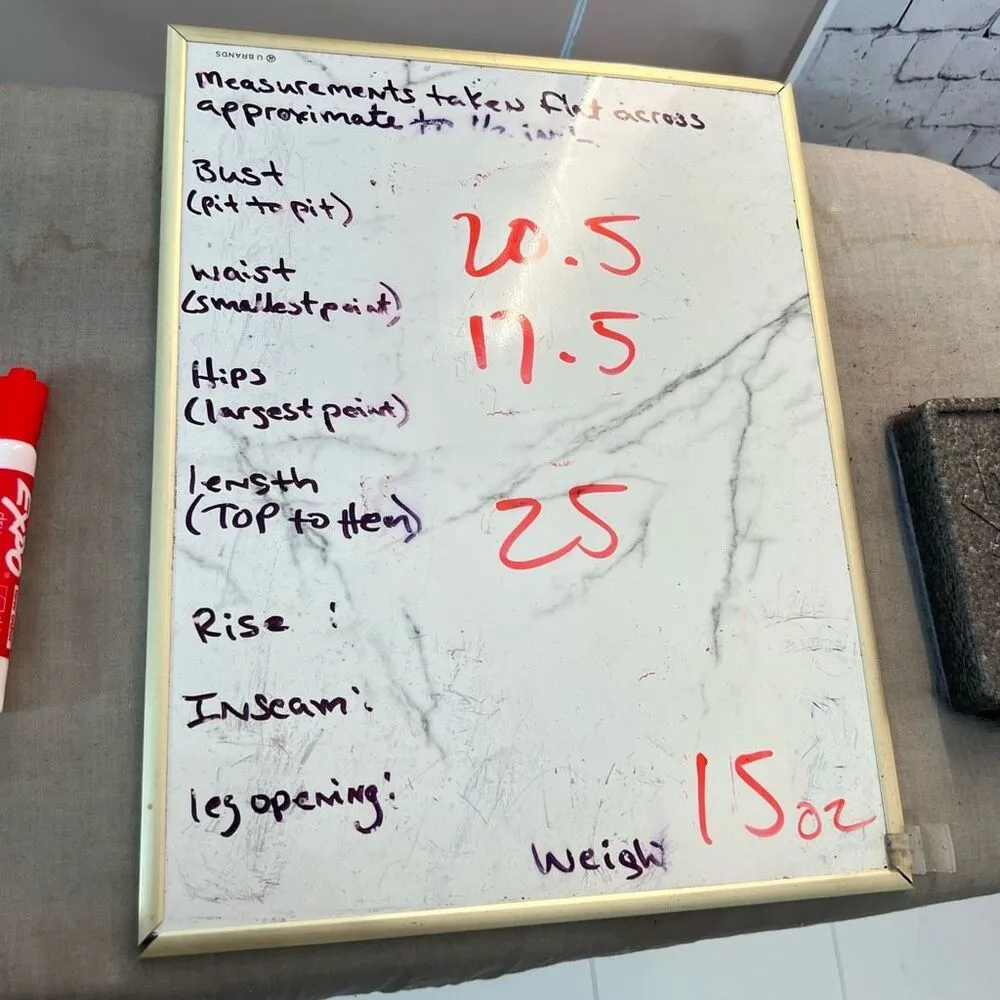 U BRANDS
Measurements taken flat across
approximate to 1/2
Bust
(pit to pit)
20.5
waist
(smallest point)
17.5
Hips
(largest point)
length
(TOP to Hem)
25
Rise :
Inseam:
leg opening:
15oz
Weigh
EXPO